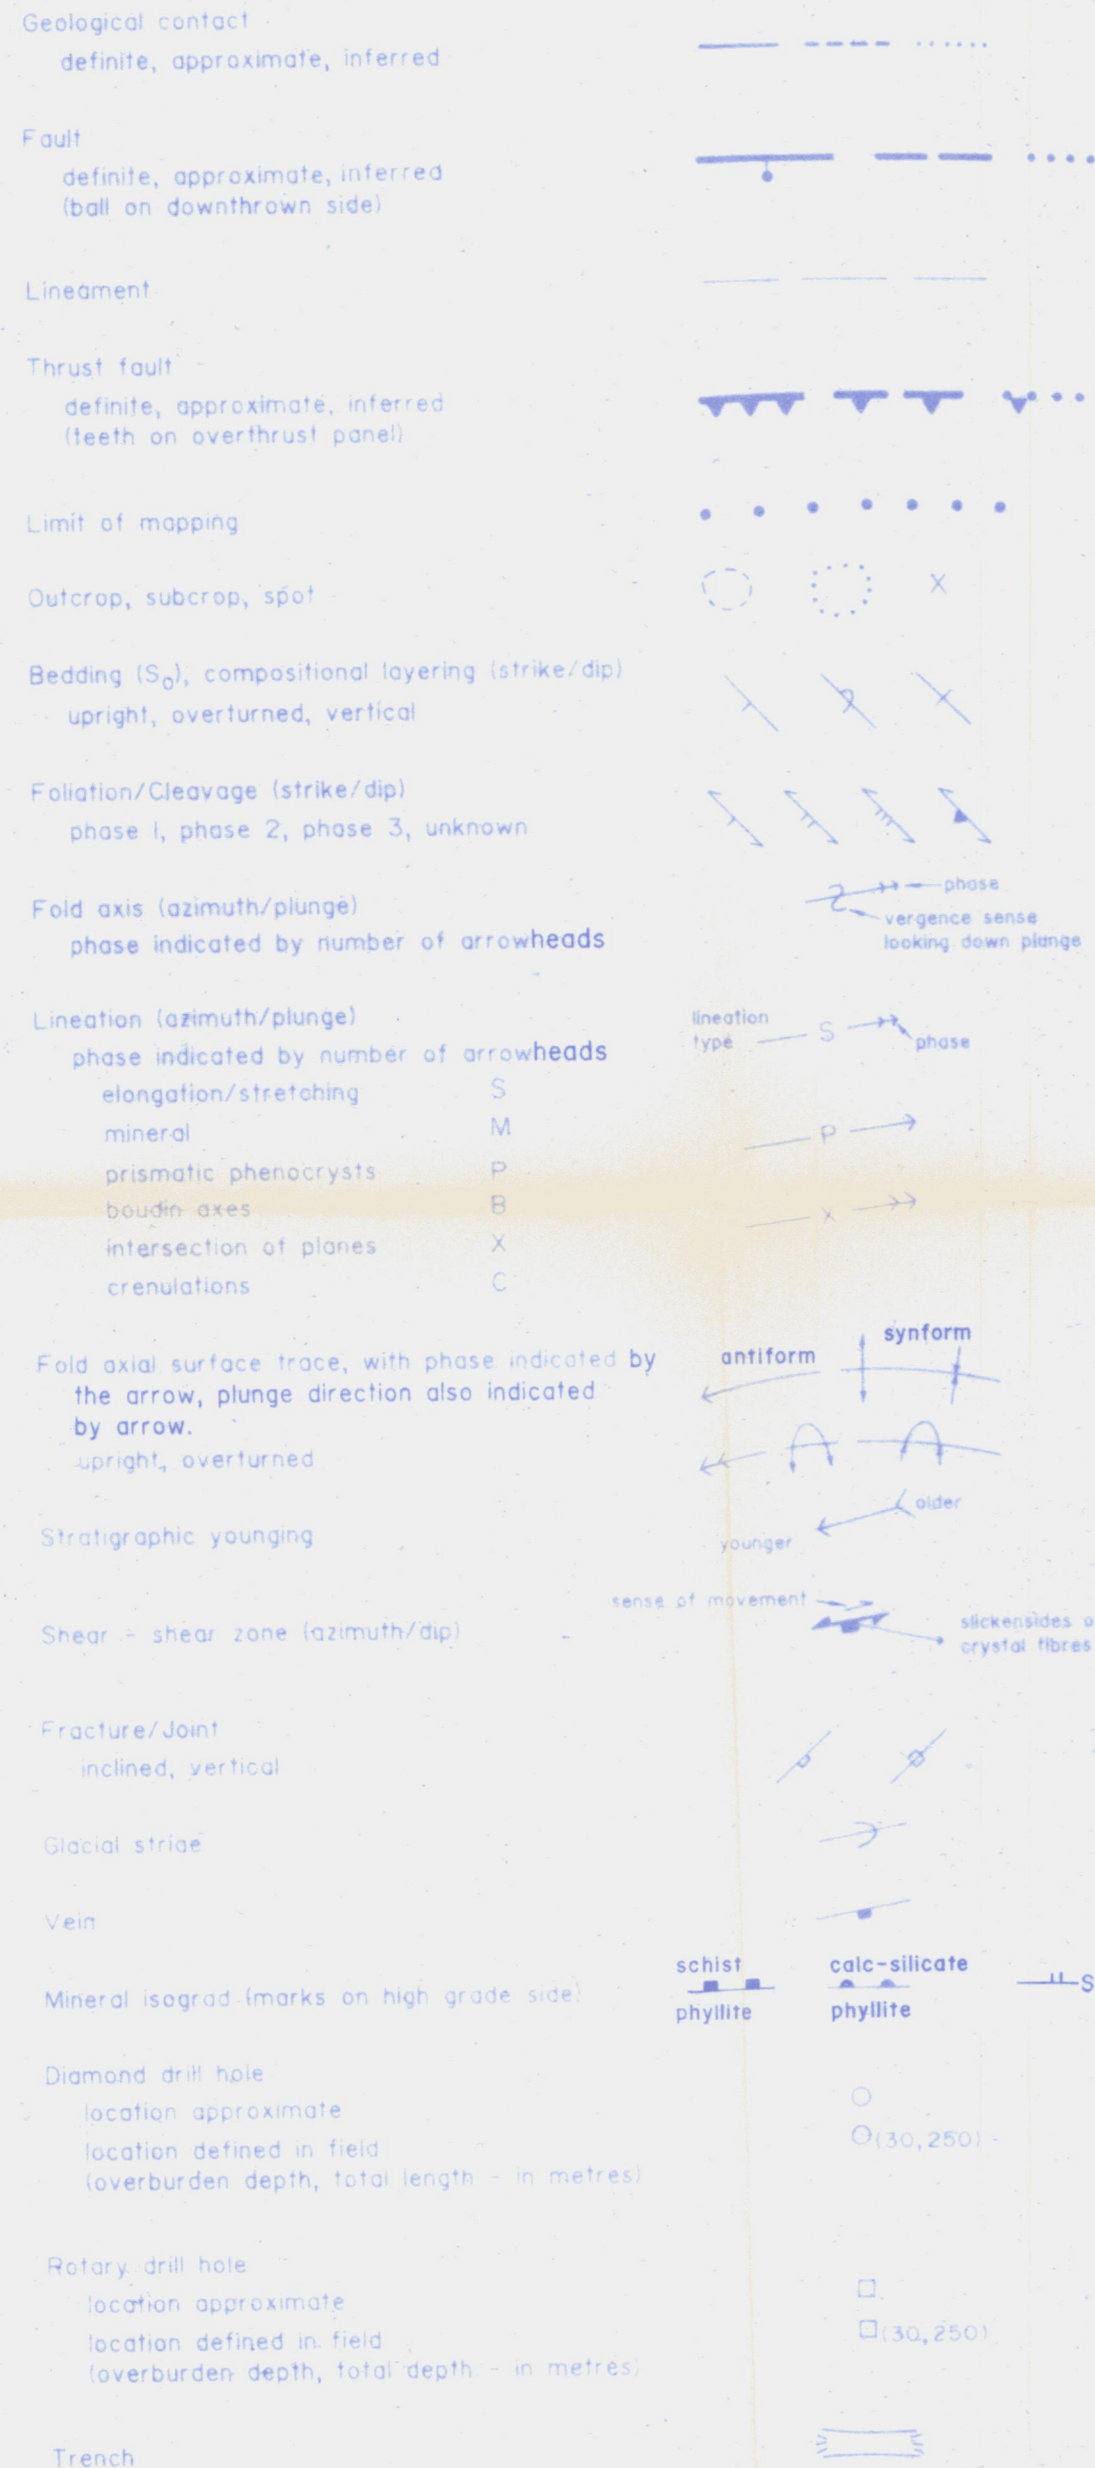 Geological contact
definite, approximate, inferred
Fault
definite, approximate, inferred
(ball on downthrown side)
Lineament
Thrust fault
definite, approximate, inferred
(teeth on overthrust panel)
Limit of mapping
Outcrop, subcrop, spot
X
Bedding (S₀), compositional layering (strike/dip)
upright, overturned, vertical
Foliation/Cleavage (strike/dip)
phase 1, phase 2, phase 3, unknown
phase
Fold axis (azimuth/plunge)
vergence sense
phase indicated by number of arrowheads
looking down plunge
Lineation (azimuth/plunge)
lineation
type
S
phase
phase indicated by number of arrowheads
elongation/stretching S
mineral M
P
prismatic phenocrysts P
boudin axes B
X
intersection of planes X
crenulations C
synform
antiform
Fold axial surface trace, with phase indicated by
the arrow, plunge direction also indicated
by arrow.
upright, overturned
older
Stratigraphic younging
younger
sense of movement
Shear - shear zone (azimuth/dip)
slickensides o
crystal fibres
Fracture/Joint
inclined, vertical
Glacial striae
Vein
schist calc-silicate
Mineral isograd (marks on high grade side) S
phyllite phyllite
Diamond drill hole
location approximate
location defined in field (30,250)
(overburden depth, total length - in metres)
Rotary drill hole
location approximate
location defined in field (30,250)
(overburden depth, total depth - in metres)
Trench